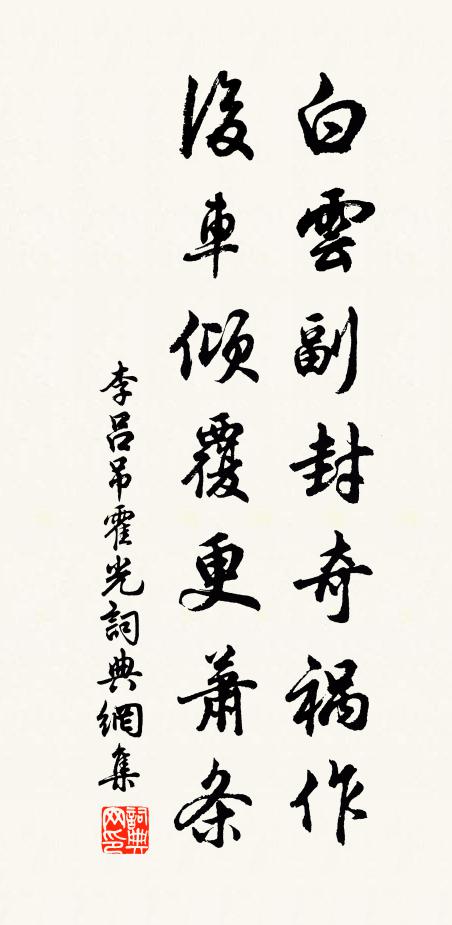 白雲副封奇禍作
後車傾覆更蕭条
李呂吊霍光詞典網集
詞典网印